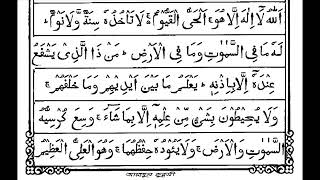 اَللهُ لَا اِلٰهَ اِلَّا هُوَ ۚ اَلْحَىُّ الْقَيُّوْمُ ۚ لَا تَاْخُذُهٗ سِنَةٌ وَّلَا نَوْمٌ ؕ
لَهٗ مَا فِى السَّمٰوٰتِ وَمَا فِى الْاَرْضِ ؕ مَنْ ذَا الَّذِىْ يَشْفَعُ
عِنْدَهٗۤ اِلَّا بِاِذْنِهٖ ؕ يَعْلَمُ مَا بَيْنَ اَيْدِيْهِمْ وَمَا خَلْفَهُمْ ۚ
وَلَا يُحِيْطُوْنَ بِشَىْءٍ مِّنْ عِلْمِهٖۤ اِلَّا بِمَا شَآءَ ۚ وَسِعَ كُرْسِيُّهُ
السَّمٰوٰتِ وَالْاَرْضَ ۚ وَلَا يَئُوْدُهٗ حِفْظُهُمَا ۚ وَهُوَ الْعَلِىُّ الْعَظِيْمُ